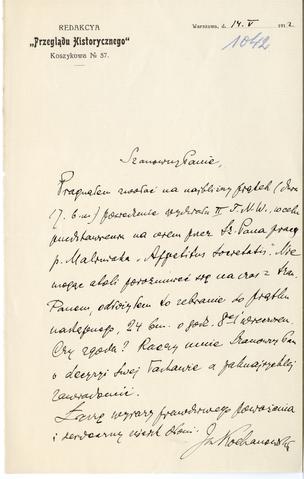 REDAKCYA
„Przeglądu Historycznego"
Koszykowa № 37.
Warszawa, d. 14. V 1912.
1042
Szanowny Panie,
Pragnąłem zwołać na najbliższy piątek (dnia
17. b. m.) posiedzenie wydziału II T. N. W., w celu
przedstawienia na niem przez Sz. Pana pracy
p. Malewicza „Appetitus Societatis". Nie
mogąc atoli porozumieć się na czas z Sza.
Panem, odłożyłem to zebranie do piątku
następnego, 24 b. m. o godz. 8ej wieczorem.
Czy zgoda? Raczy mnie Szanowny Pan
o decyzyi swej łaskawie a jaknajszybciej
zawiadomić.
Łączę wyrazy prawdziwego poważania
i serdeczny uścisk dłoni.
J. Kochanowski